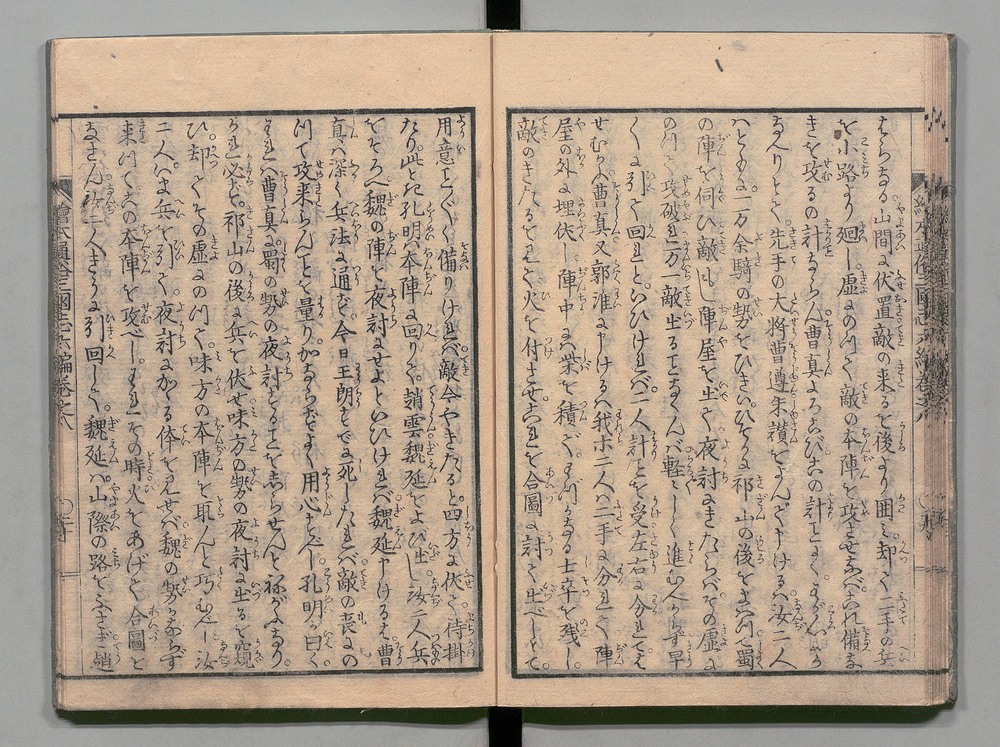 はらなる山間に伏置敵の来るを後より囲み却て二手の兵
を小路より廻し虚にのつて敵の本陣を攻させ玉へこれ備な
きを攻るの計ならん曹真よろこび此の計とくまが心にか
なへりとて先手の大将曹遵朱讃をよんで申けるハ汝二人
ハともに一万余騎の勢をひきいひそかに祁山の後をまハつて蜀
の陣を伺ひ敵もし陣屋を出て夜討にきたらバその虚に
のつて攻破れ万一敵出ることなくんバ軽々しく進むべからず早
く引て回れといひけれバ二人計を受左右に分れてま
せむかふ曹真又郭淮に申けるハ我ホ二人ハ二手に分れて陣
屋の外に埋伏し陣中にハ柴を積ぐわづかなる士卒を残し
敵のきたるを見て火を付させこれを合圖に討て出べしとて
用意をなして備りけれバ敵今やきたると四方に伏て待掛
たり此とき孔明ハ本陣に回りて趙雲魏延をよび出し汝二人兵
をそろへ魏の陣を夜討にせよといひけれバ魏延申けるハ曹
真ハ深く兵法に通ず今日王朗もすでに死したれバ敵の喪にの
つて攻来らんことを量りかならずよく用心すべし孔明が曰く
われハ曹真に蜀の勢の夜討することをしらせんと祢がふなり
かれ必ず祁山の後に兵を伏せ味方の勢の夜討に出るを窺
ひ却てその虚にのつて味方の本陣を取んと巧むべし汝
二人ハまづ兵を引て夜討にかかる体を見せバ魏の勢かならず
来つて此の本陣を攻べしわれその時火をあげて合圖と
なさん汝二人きうに引回して魏延ハ山際の路をふさぎ趙
繪本通俗三國志六編巻之八